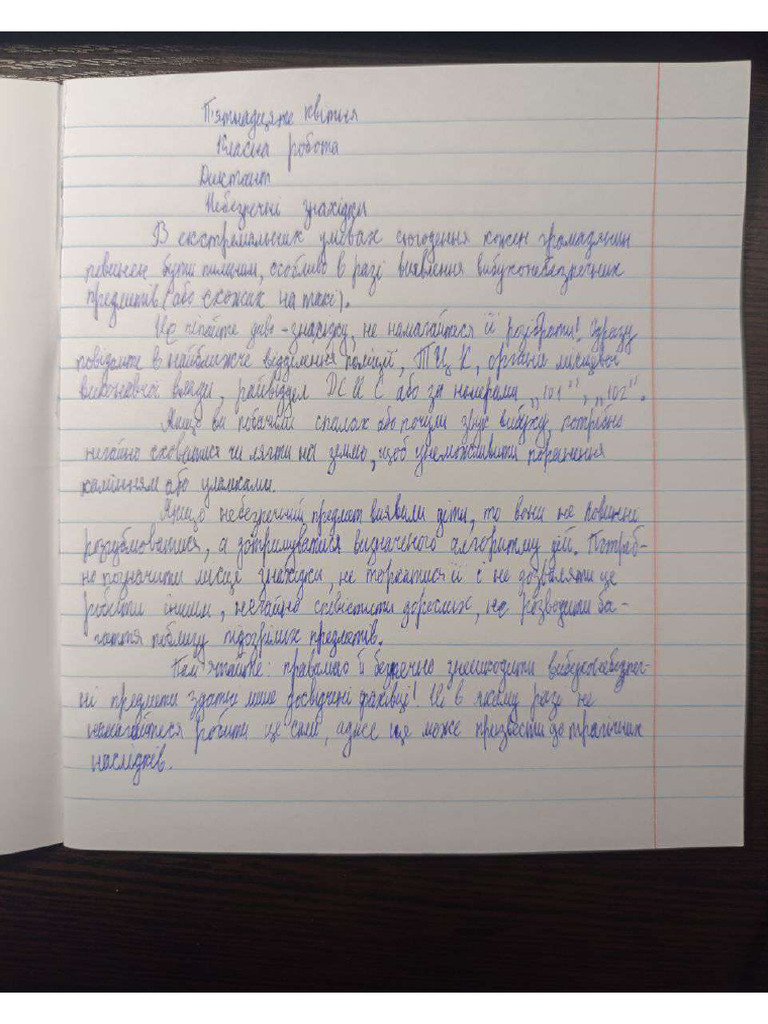 П'ятнадцяте квітня
Класна робота
Диктант
Небезпечні знахідки
В екстремальних умовах сьогодення кожен громадянин
повинен бути пильним, особливо в разі виявлення вибухонебезпечних
предметів (або схожих на такі).
Не чіпайте диво-знахідку, не намагайтеся її розібрати! Одразу
повідомте в найближче відділення поліції, ТЦК, органи місцевої
виконавчої влади, райвідділ ДСНС або за номерами „101", „102".
Якщо ви побачили спалах або почули звук вибуху, потрібно
негайно сховатися чи лягти на землю, щоб унеможливити поранення
камінням або уламками.
Якщо небезпечний предмет виявили діти, то вони не повинні
розгублюватися, а дотримуватися визначеного алгоритму дій. Потріб-
но позначити місце знахідки, не торкатися її і не дозволяти це
робити іншим, негайно сповістити дорослих, не розводити ба-
гаття поблизу підозрілих предметів.
Пам'ятайте: правильно й безпечно знешкодити вибухонебезпеч-
ні предмети здатні лише досвідчені фахівці! Ні в якому разі не
намагайтеся робити це самі, адже це може призвести до трагічних
наслідків.